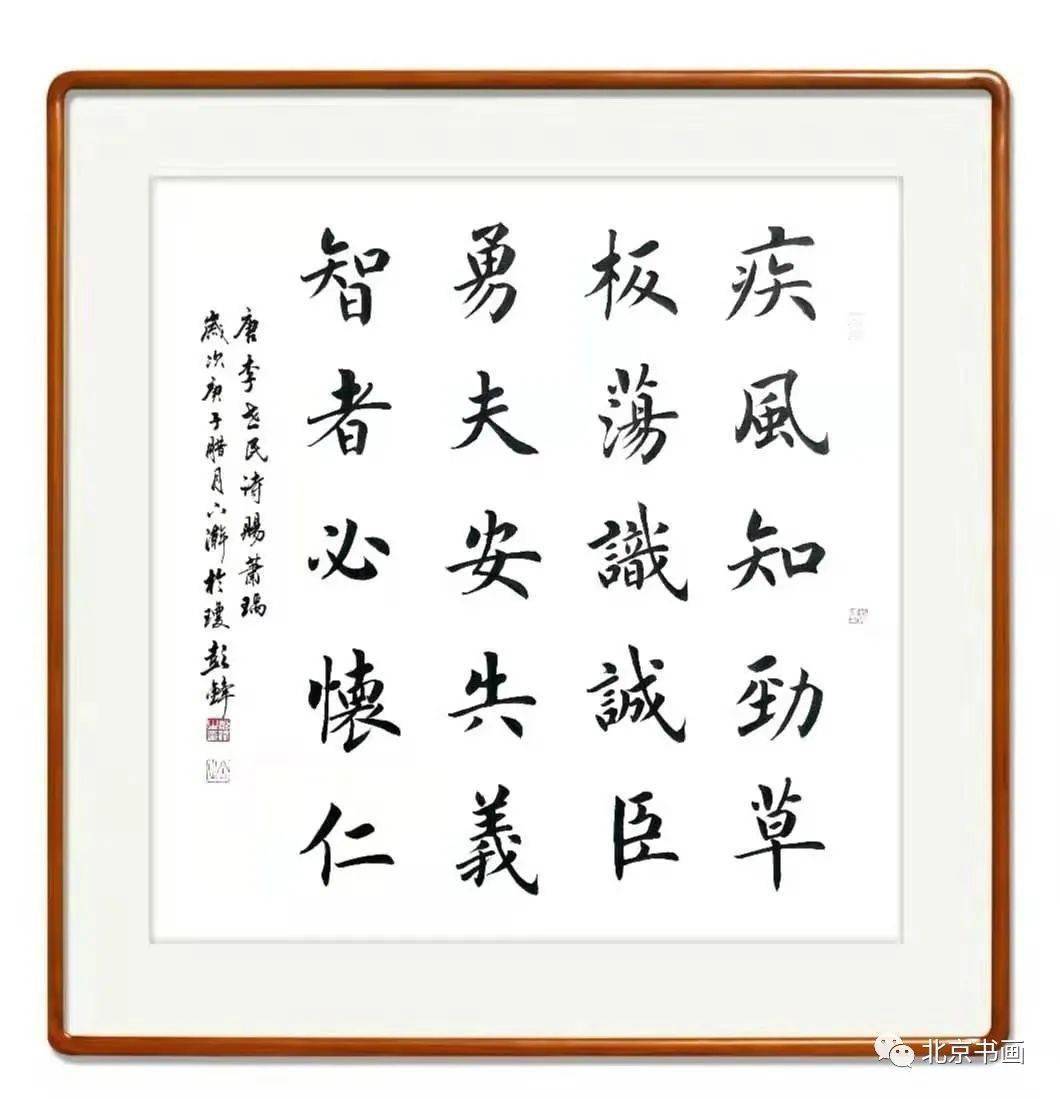 疾風知勁草
板蕩識誠臣
勇夫安共義
智者必懷仁
唐李世民诗賜蕭瑀
歲次庚子腊月下澣於瓊彭鋒
北京书画